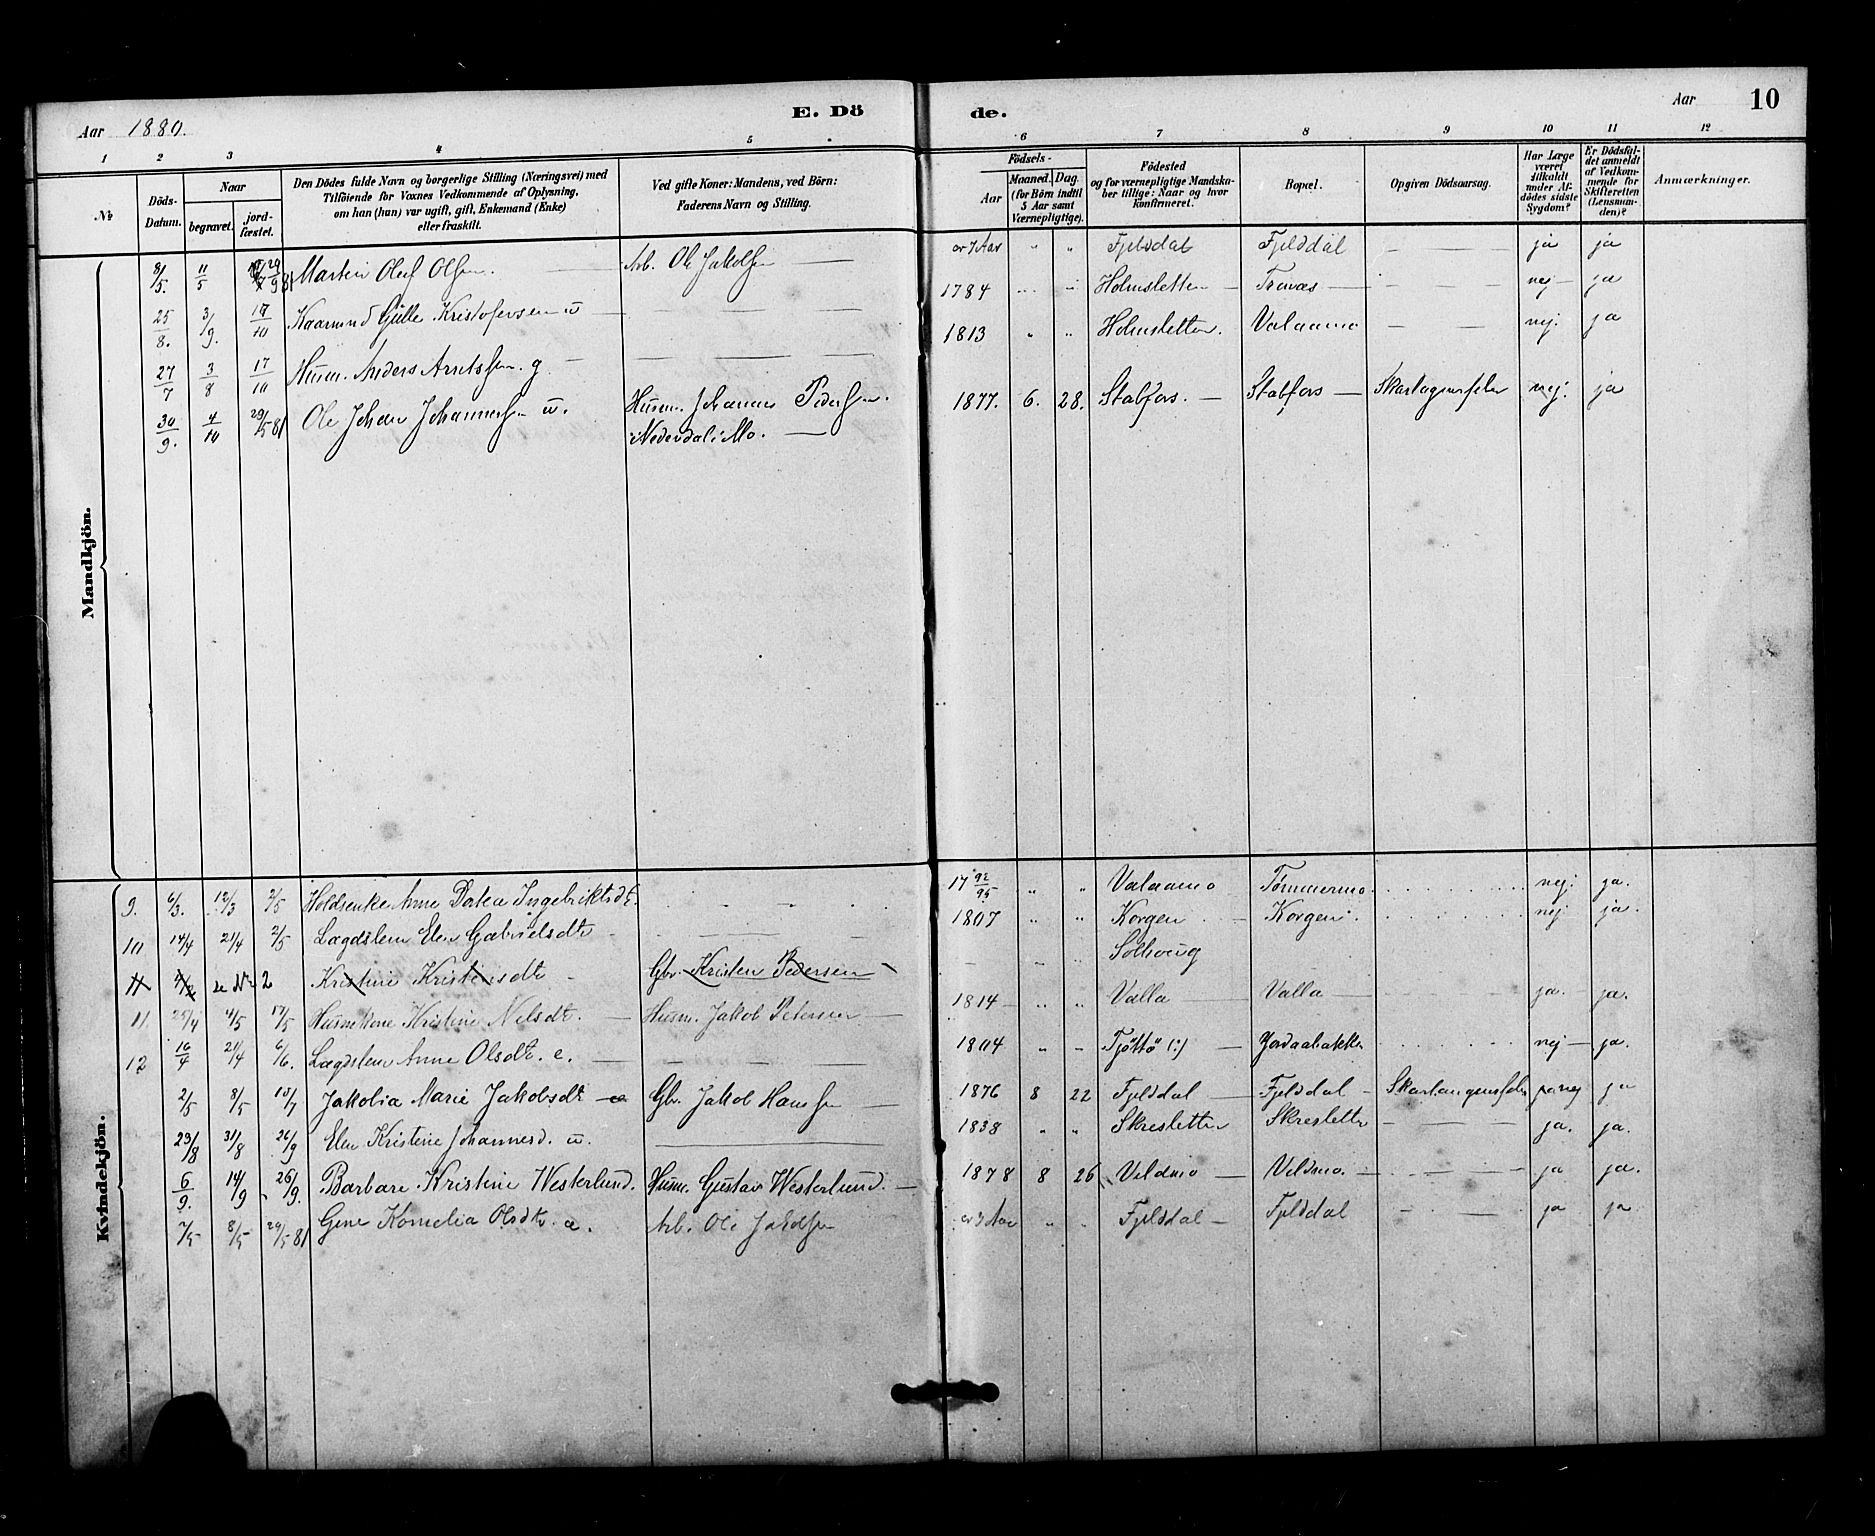 Aar 1880.
E. Dö de.
Aar 10
1 2 3 4 5 6 7 8 9 10 11 12
No
Döds-Datum.
Naar
begravet.
jord-fæstet.
Den Dödes fulde Navn og borgerlige Stilling (Næringsvei) med
Tilföiende for Voxnes Vedkommende af Oplysning,
om han (hun) var ugift, gift, Enkemand (Enke)
eller fraskilt.
Ved gifte Koner: Mandens, ved Börn:
Faderens Navn og Stilling.
Födsels-
Aar
Maaned. Dag.
(for Börn indtil
5 Aar samt
Værnepligtige).
Födested
og for værnepligtige Mandska-
ber tillige: Naar og hvor
konfirmeret.
Bopæl.
Opgiven Dödsaarsag.
Har Læge
været
tilkaldt
under Af-
dödes sidste
Sygdom?
Er Dödsfal-
det anmeldt
af Vedkom-
mende for
Skifteretten
(Lensman-
den)?
Anmærkninger.
Mandkjön.
8/5. 11/5 Martin Oluf Olsen. Arb. Ole Jakobsen 7 Aar " " Fjelddal Fjelddal ja ja
25/8. 3/9. 17/10 Gulle Kristofersen u 1784 Holmsletten Trævas nej ja
27/7 3/8 17/10 Husm. Anders Arntssen. g 1813 " " Holmsletten. Valaamo nej. ja
30/9. 4/10 29/5 81 Ole Johan Johannessen u. Husm. Johannes Pedersen. 1877. 6. 28. Stabfors. Stabfors Skarlagensfeber nej. ja
Nederdal i Mo.
Kvindekjön.
9. 6/3. 12/3 2/5 Anne Datea Ingebriktsdt. 17 92/95 " " Valaamo Tømmermo. nej. ja.
10 14/4 21/4 2/5 Lægdslem Elen Gabrielsdt 1807 " " Korgen Korgen. nej ja.
11 2 Kristine Kristensdt Gbr. Kristen Pedersen Solhoug
11. 4/5 17/5 Huskone Kristine Nilsdt. Husm. Jakob Petersen 1814 " " Valla Valla ja. ja.
12 16/4 21/4 6/6. Lægdslem Anne Olsdt. e. 1804 " " Tjöttö (:) nej ja.
2/5 8/5 Jakobia Marie Jakobsdt Gbr. Jakob Hanssen 1876 8 22 Fjelddal Fjelddal ja
29/8 31/8 26/9 Elen Kristine Johannesd. u. 1838 " " Skresletten Skresletten ja. ja.
6/9. 14/9 26/9. Barbare Kristine Westerlund. Husm. Gustav Westerlund. 1878 8 26 Veldmo Veldmo. ja ja.
7/5 8/5 29/5 81 Gine Kornelia Olsdt. Arb. Ole Jakobsen 3 Aar " " Fjelddal Fjelddal ja ja